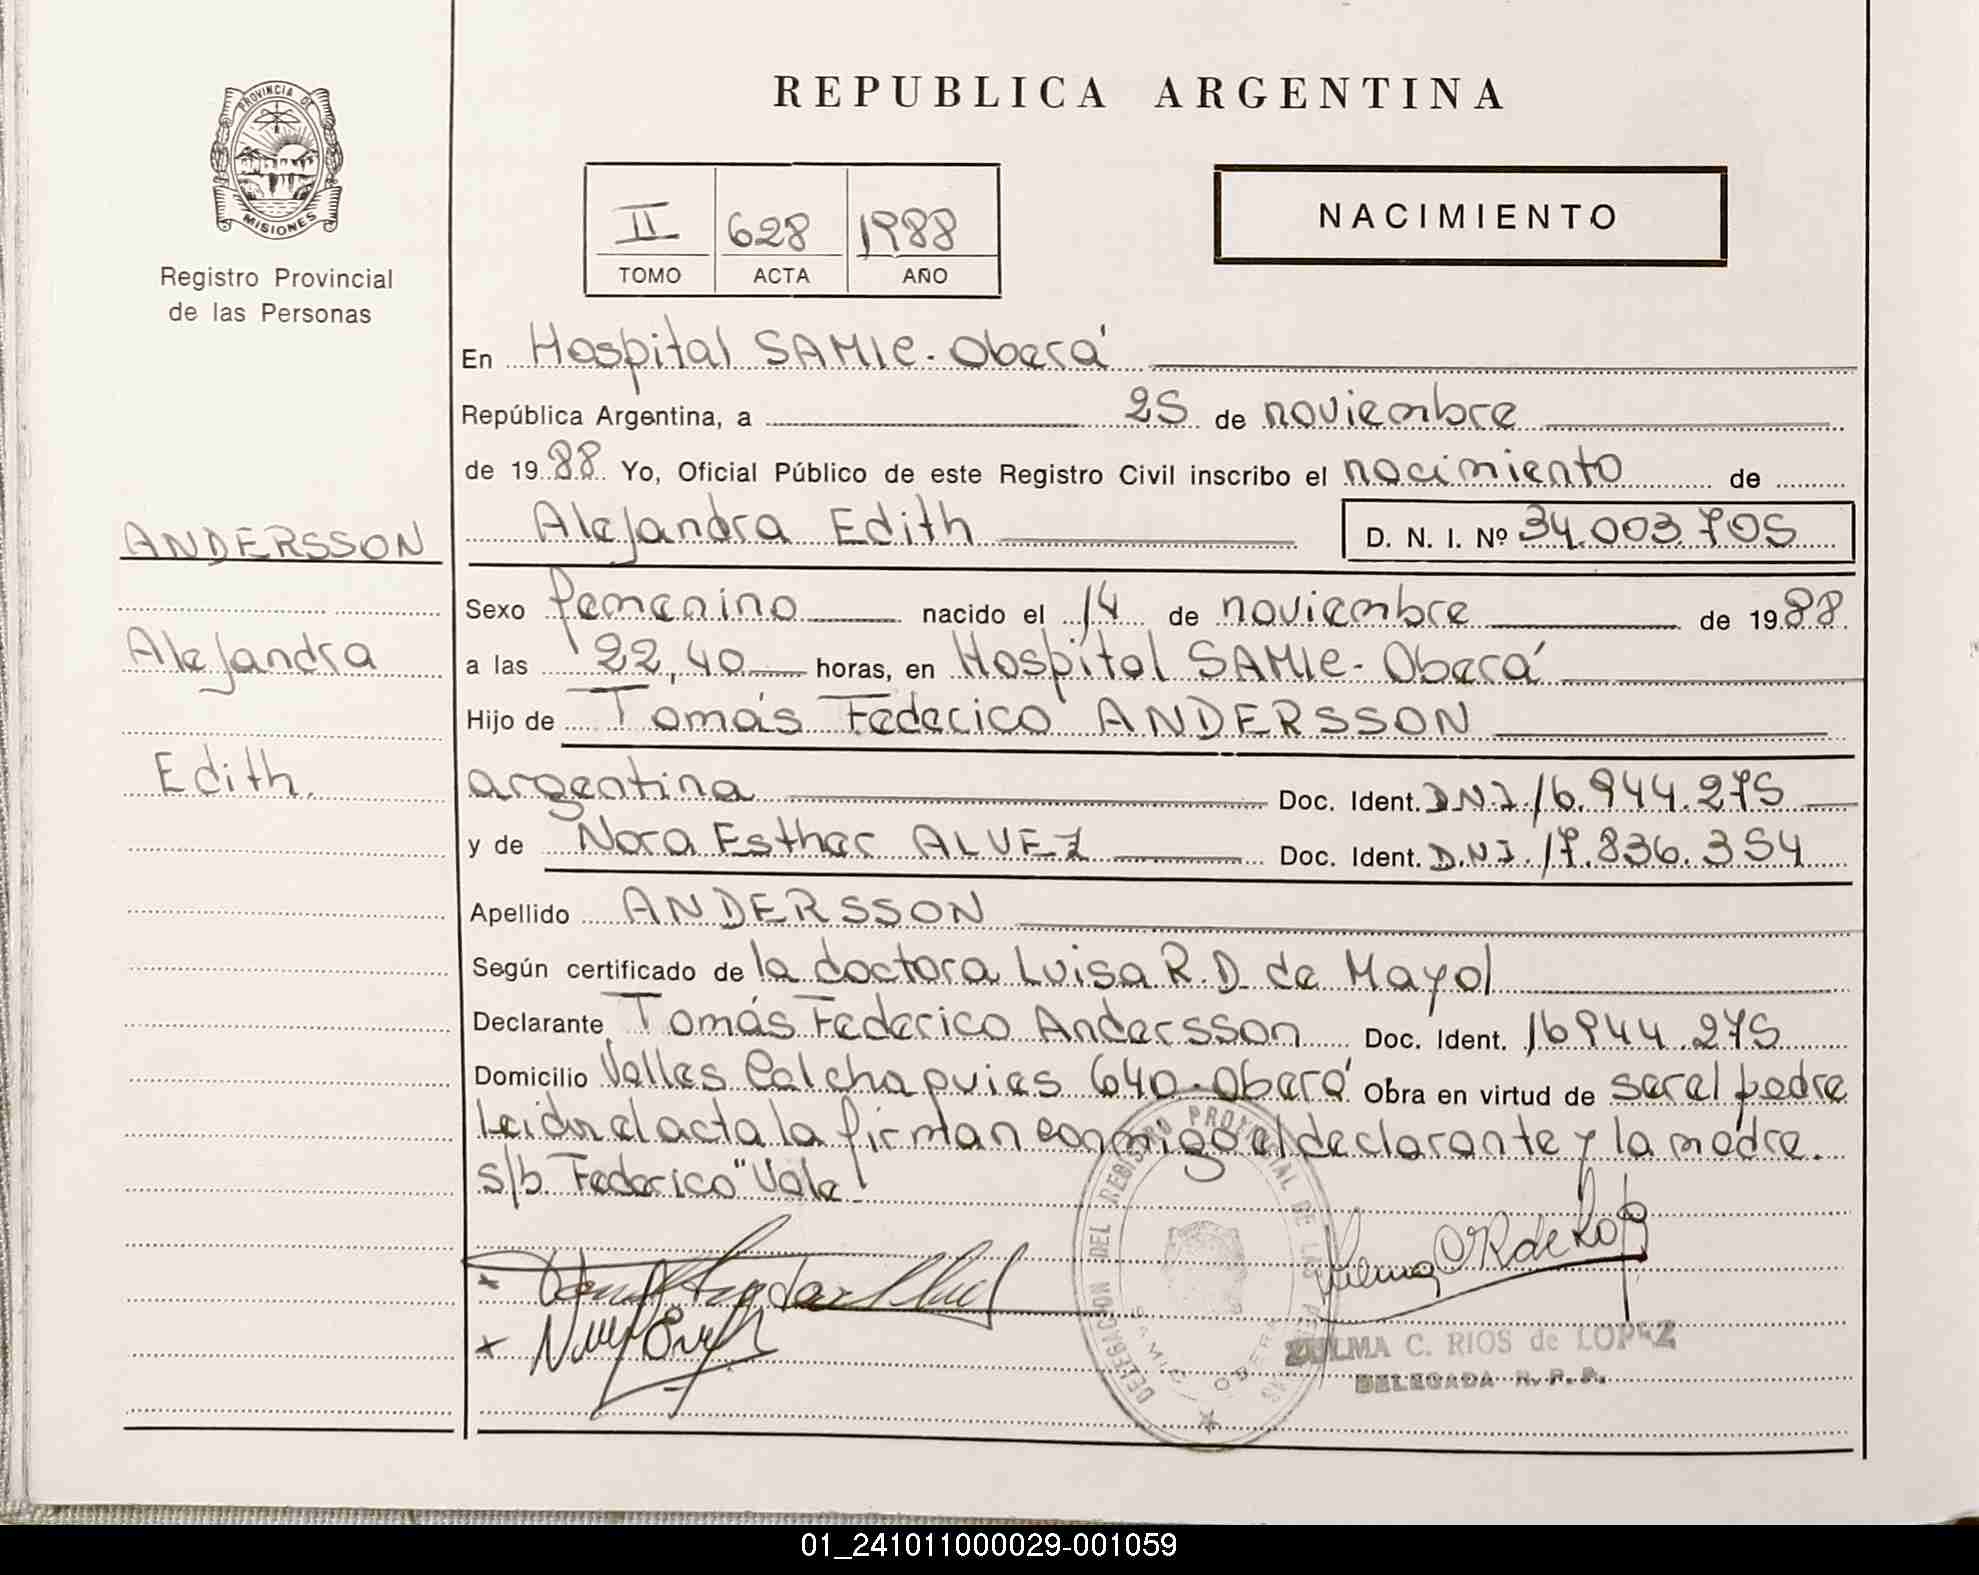 REPUBLICA ARGENTINA
PROVINCIA DE
MISIONES
Registro Provincial
de las Personas
II 628 1988
TOMO ACTA AÑO
NACIMIENTO
En Hospital SAMIC - Oberá
República Argentina, a 25 de noviembre
de 1988 Yo, Oficial Público de este Registro Civil inscribo el nacimiento de
Alejandra Edith D. N. I. Nº 34.003.705
ANDERSSON
Alejandra
Edith.
Sexo femenino nacido el 14 de noviembre de 1988
a las 22,40 horas, en Hospital SAMIC - Oberá
Hijo de Tomás Federico ANDERSSON
argentina Doc. Ident. D.N.I. 16.944.275
y de Nora Esther ALVEZ Doc. Ident. D.N.I. 17.836.354
Apellido ANDERSSON
Según certificado de la doctora Luisa R. D. de Mayol
Declarante Tomás Federico Andersson Doc. Ident. 16944.275
Domicilio Valles Calchaquies 640 - Oberá Obra en virtud de ser el padre
Leida el acta la firman conmigo el declarante y la madre.
s/b. Federico" Vale
DELEGACION DEL REGISTRO PROVINCIAL DE LAS PERSONAS
SAMIC OBERA
ZULMA C. RIOS de LOPEZ
DELEGADA R. P. P.
01_241011000029-001059